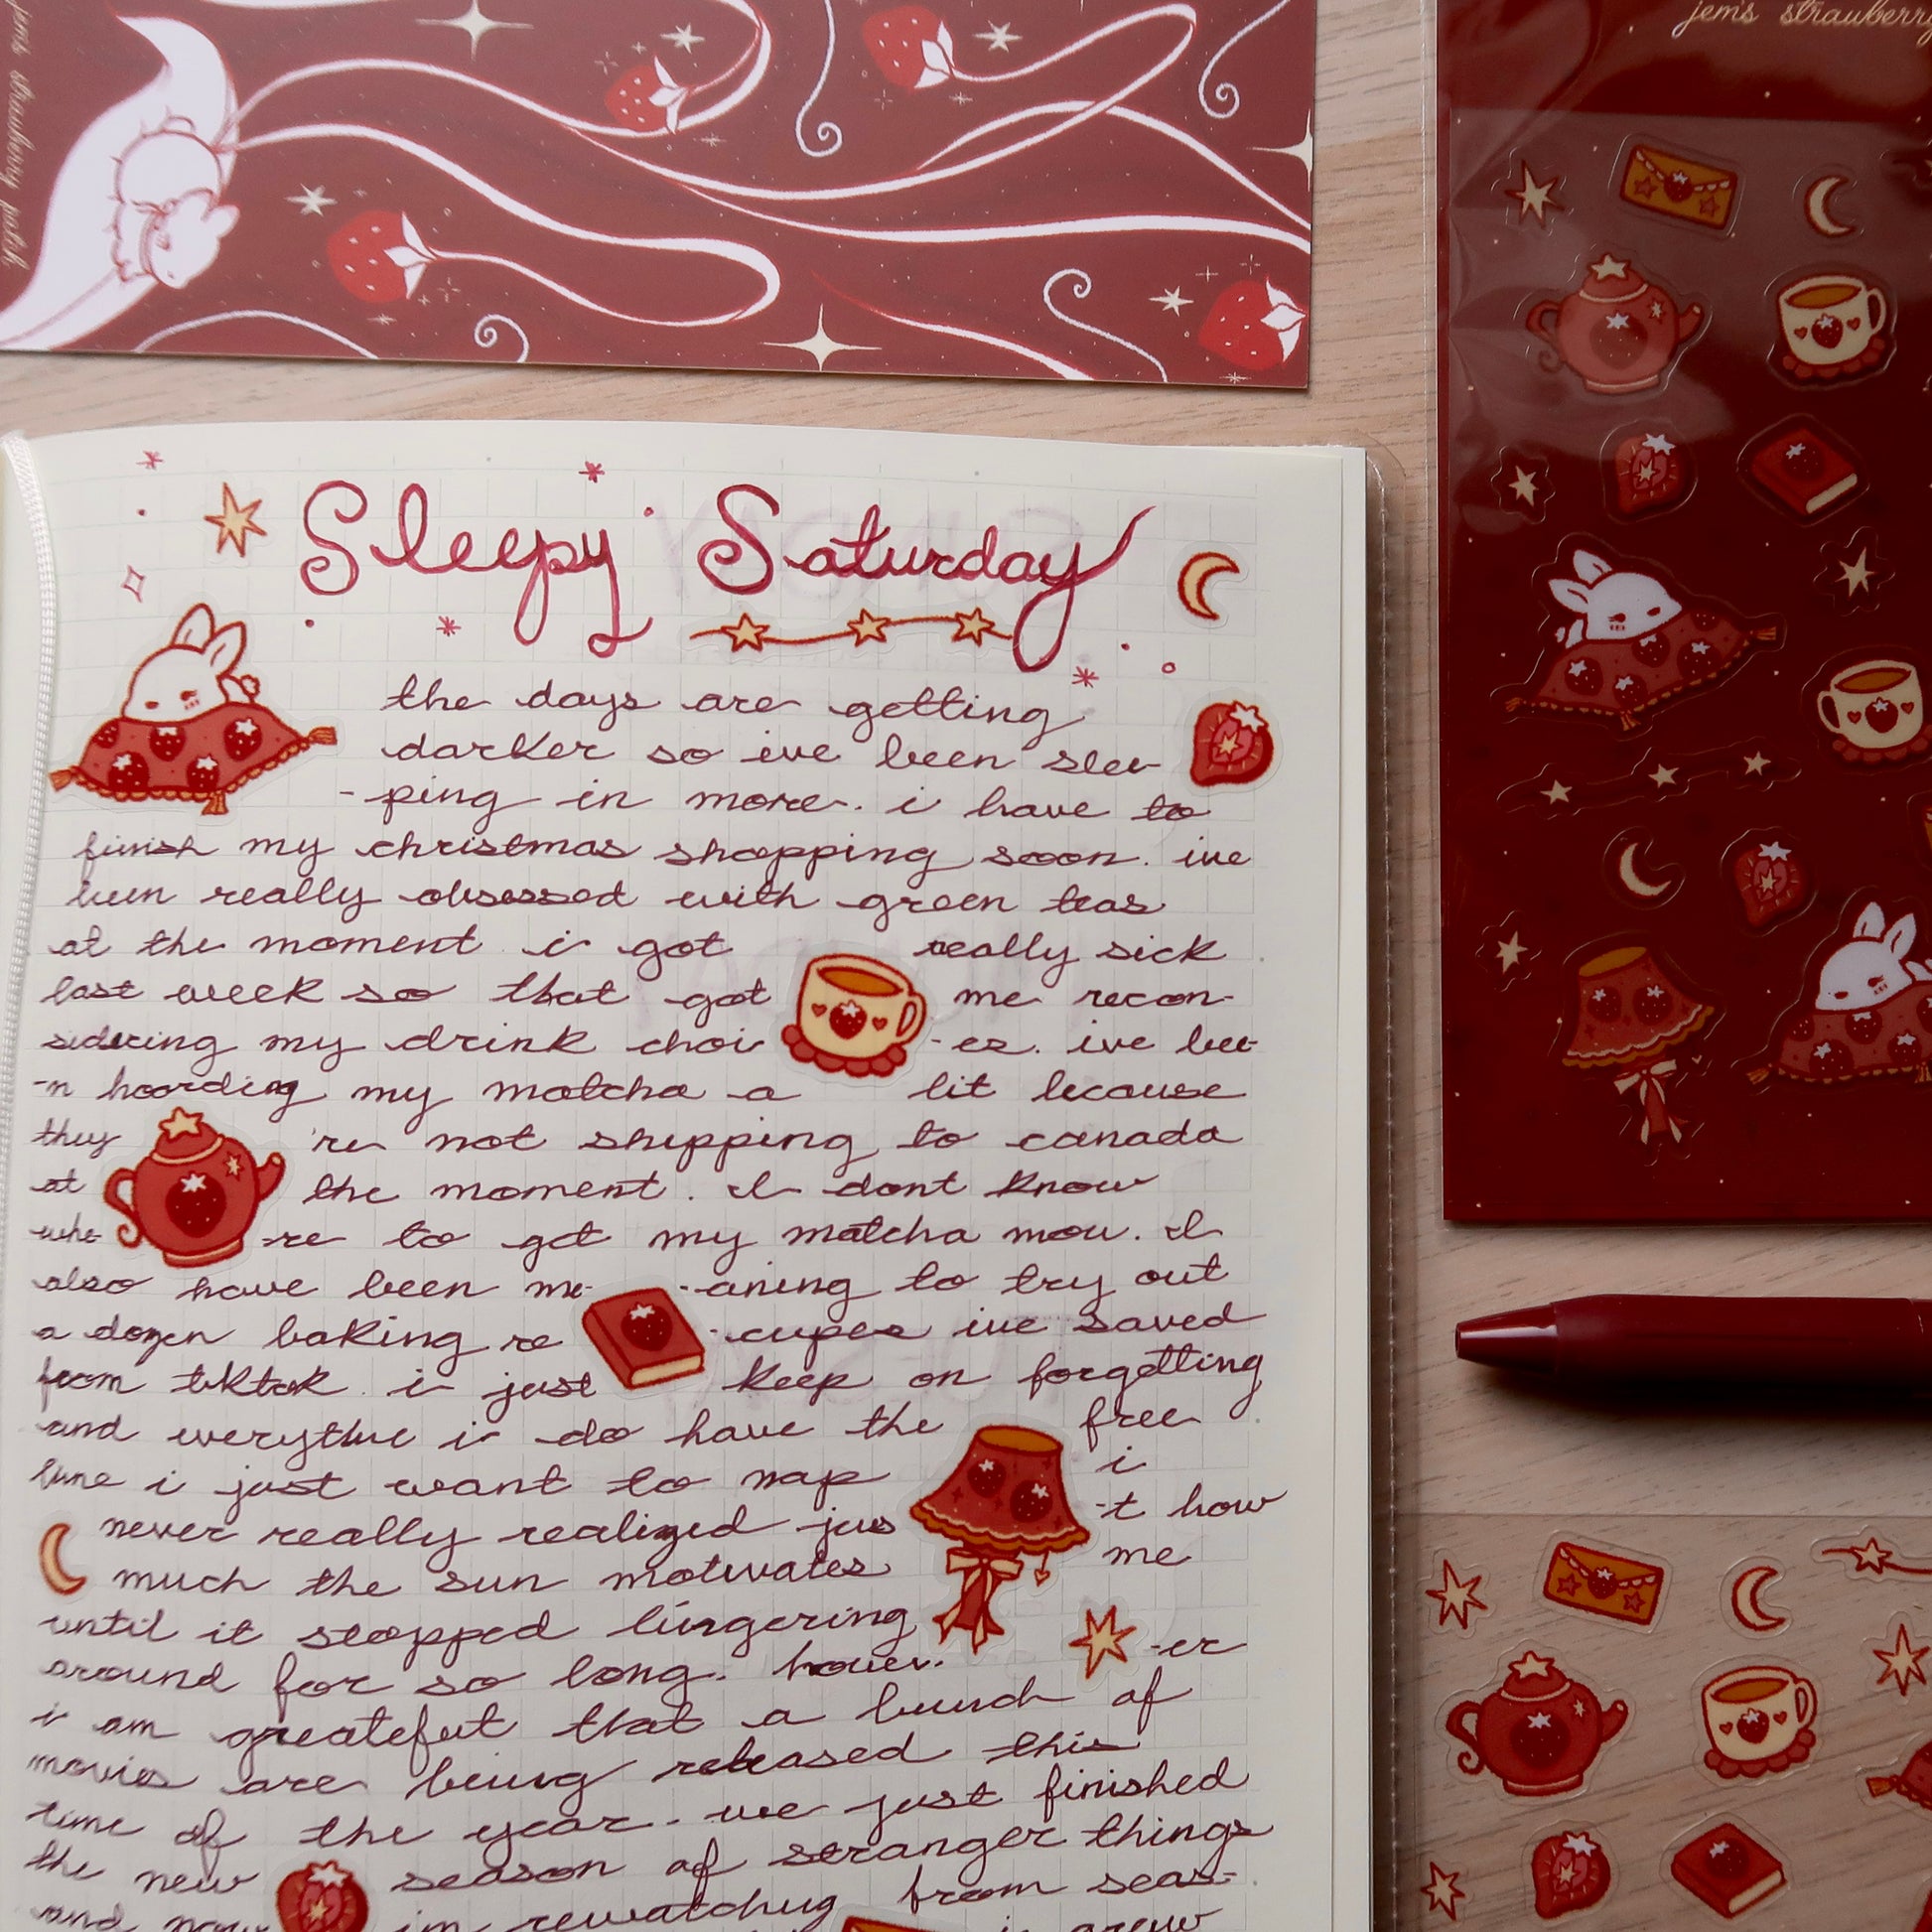 jem's strawberry patch
jem's strawberry
Sleepy Saturday
the days are getting
darker so ive been slee-
-ping in more. i have to
finish my christmas shopping soon. ive
been really obsessed with green teas
at the moment i got really sick
last week so that got me recon-
sidering my drink choi -es. ive bee-
-n hoarding my matcha a bit because
they 're not shipping to canada
at the moment. I dont know
whe- -re to get my matcha mow. I
also have been me- -aning to try out
a dozen baking re -cupes ive saved
from tiktok. i just keep on forgetting
and everytime i do have the free
time i just want to nap i
never really realized jus -t how
much the sun motivates me
until it stopped lingering
around for so long. howev. -er
i am greateful that a bunch of
movies are being released this
time of the year. we just finished
the new season of stranger things
and now im rewatching from seas-
i grew